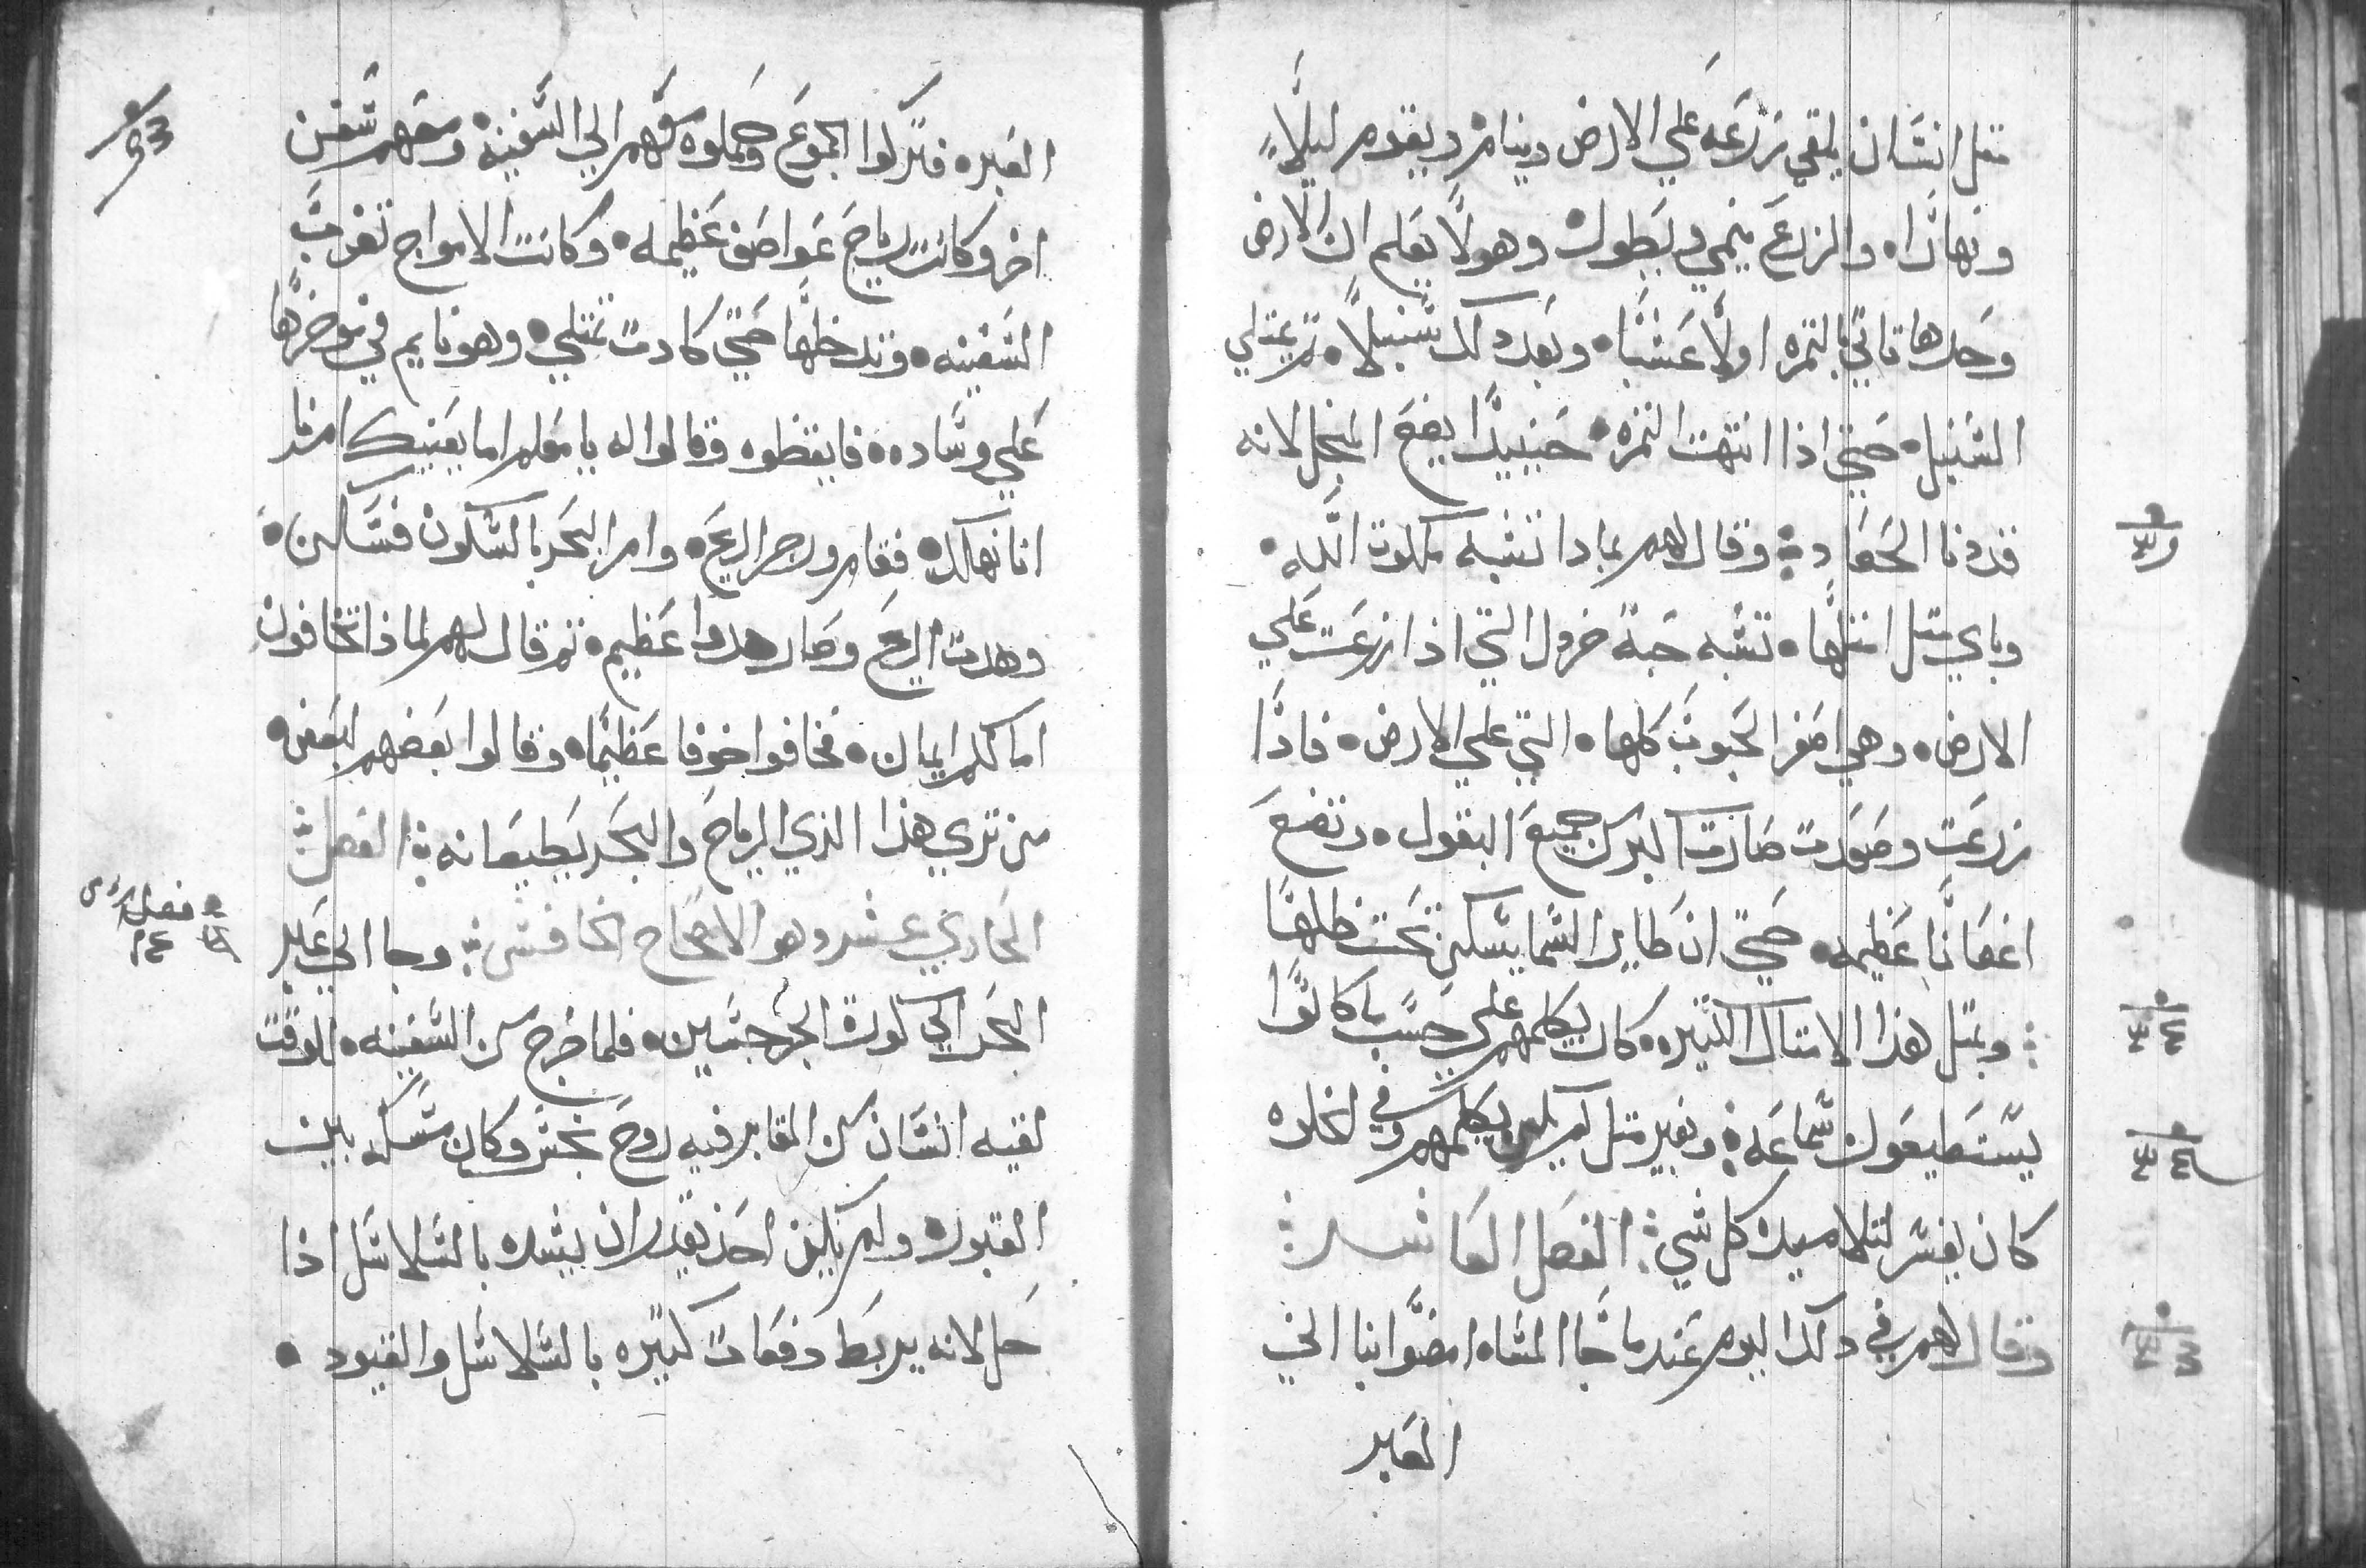 مثل انسان يلقي زرعه علي الارض وينام ويقوم ليلاً
ونهارًا والزرع ينمي ويطول وهو لا يعلم ان الارض
وحدها تاتي بالثمره اولا عشبا وبعد دلك سنبلا ثم يمتلي
السنبل حتي اذا انتهت الثمره حينيدا يضع المنجل لانه
قد دنا الحصاد وقال لهم بمادا تشبه ملكوت الله
وباي مثل امتلها تشبه حبة خردل التي اذا زرعت علي
الارض وهي اصغر الحبوب كلها التي علي الارض فادا
زرعت وصعدت صارت اكبر من جميع البقول وتصنع
اغصانا عظيمه حتي ان طاير السما يسكن تحت ظلها
وبمتل هذا الامتال الكتيره كان يكلمهم علي حسب ما كانوا
يستطيعون سماعه وبغير متل لم يكن يكلمهم وفي الخلوه
كان يفسر لتلاميده كل شي الفصل العاشر
وقال لهم في دلك اليوم عندما جا المساه امضوا بنا الي
العبر
٩٣
العبره فتركوا الجموع وحملوه معهم الي السفينه ومعهم سفن
اخر وكانت رياح عواصف عظيمه وكانت الامواج تضرب
السفينه وتدخلها حتي كادت تمتلي وهو نايم في موخرها
علي وساده فايقظوه وقالوا له يا معلم اما يعنيك امرنا
اننا نهلك فقام وزجر الريح وامر البحر بالسكون فسكن
وهدت الريح وصار هدوا عظيم ثم قال لهم لماذا تخافون
اما لكم ايمان فخافوا خوفا عظيما وقالوا بعضهم لبعض
من تري هذا الذي الرياح والبحر يطيعانه الفصل
الحادي عشر وهو الاصحاح الخامس وجا الي عبر
فصل
البحر الي كورة الجرجسين فلما خرج من السفينه للوقت
لقيه انسان من المقابر فيه روح نجس وكان مسكنه بين
القبور ولم يكن احد يقدر ان يشده بالسلاسل اذا
حل لانه يربط دفعات كتيره بالسلاسل والقيود